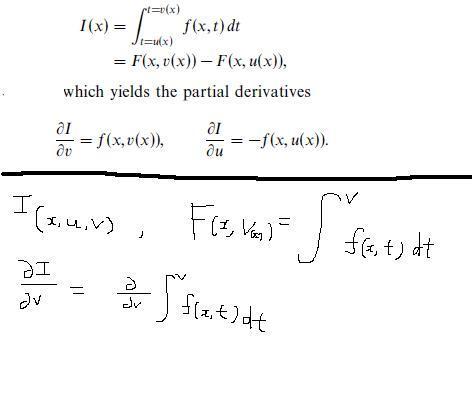 I(x) = ∫_{t=u(x)}^{t=v(x)} f(x,t) dt
= F(x, v(x)) − F(x, u(x)),
which yields the partial derivatives
∂I/∂v = f(x, v(x)), ∂I/∂u = −f(x, u(x)).
I(x, u, v) , F(x, V(x)) = ∫^v f(x, t) dt
∂I/∂v = ∂/∂v ∫^v f(x, t) dt